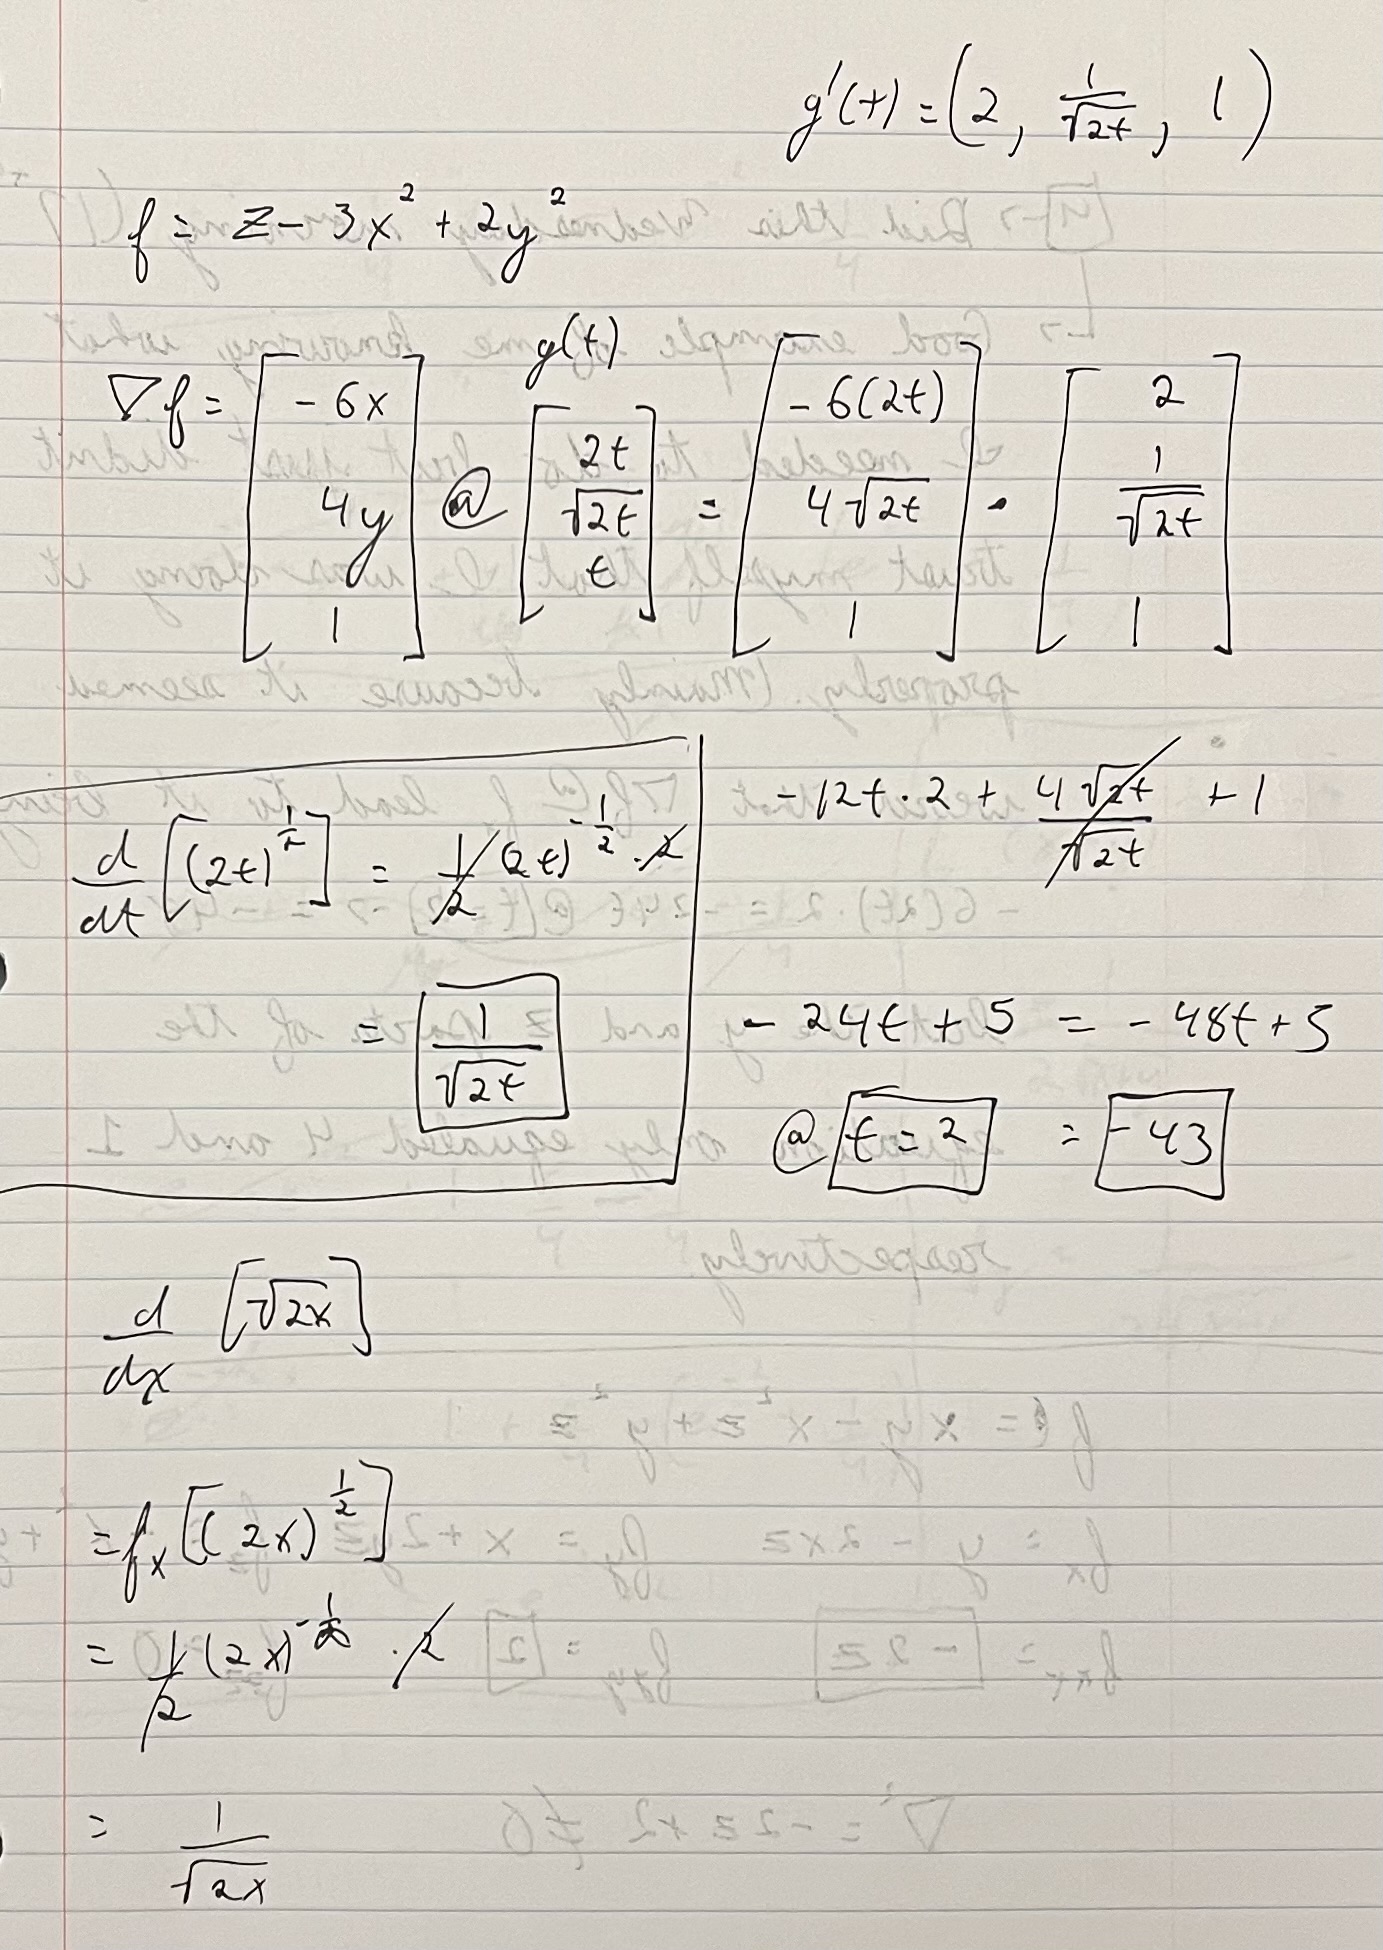 g'(t) = (2, 1/√2t, 1)
f = z - 3x² + 2y²
g(t)
∇f = [-6x 4y 1] @ [2t √2t t] = [-6(2t) 4√2t 1] · [2 1/√2t 1]
d/dt [(2t)^1/2] = 1/2 (2t)^-1/2 · 2
= 1/√2t
-12t·2 + 4√2t/√2t + 1
- 24t + 5 = - 48t + 5
@ t = 2 = -43
d/dx [√2x]
= fx [(2x)^1/2]
= 1/2 (2x)^-1/2 · 2
= 1/√2x